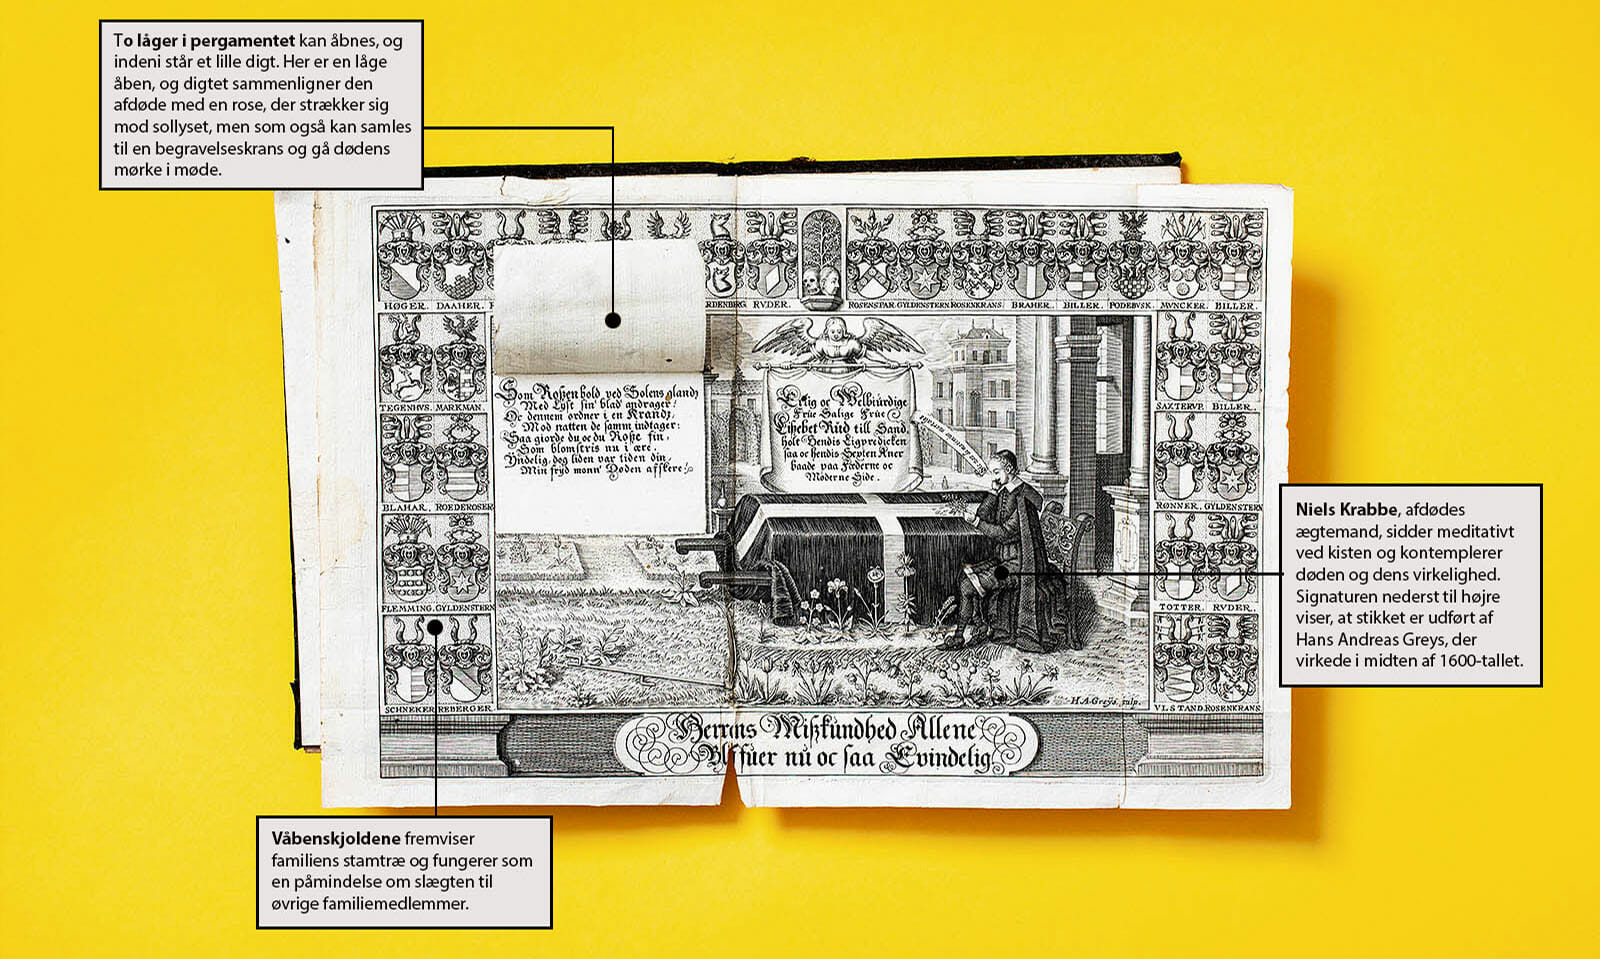 To låger i pergamentet kan åbnes, og
indeni står et lille digt. Her er en låge
åben, og digtet sammenligner den
afdøde med en rose, der strækker sig
mod sollyset, men som også kan samles
til en begravelseskrans og gå dødens
mørke i møde.
HØGER. DAAHER.
RDENBERG RVDER.
ROSENSPAR. GYLDENSTERN ROSENKRANS. BRAHER. BILLER. PODEBVSK. MVNCKER. BILLER.
TEGENHVS. MARKMAN.
SAXTERVP. BILLER.
Som Roßen bold ved Solens glandz
Med Lyst sin' blad andrager:
Oc dennem ordner i en Krandz,
Mod natten de samm indtager:
Saa giorde du oc du Roße fin,
Som blomstris nu i ære.
Yndelig, dog liden var tiden din,
Min fryd monn' Døden afskere:
Erlig oc Welbiurdige
Frue Salige Frue
Lißebet Rud till Sand,
holt Hendis Ligpredicken
saa oc hendis Seyten Aner
baade paa Fæderne oc
Møderne Side.
BLAHAR. ROEDEROSER
RØNNER. GYLDENSTERN
FLEMMING. GYLDENSTERN
TOTTER. RVDER.
SCHNEKER REBERGER.
VLSTAND. ROSENKRANS.
H.A. Greÿs. sculp.
Herrens Mißkundhed Allene
Blifuer nu oc saa Evindelig
Niels Krabbe, afdødes
ægtemand, sidder meditativt
ved kisten og kontemplerer
døden og dens virkelighed.
Signaturen nederst til højre
viser, at stikket er udført af
Hans Andreas Greys, der
virkede i midten af 1600-tallet.
Våbenskjoldene fremviser
familiens stamtræ og fungerer som
en påmindelse om slægten til
øvrige familiemedlemmer.